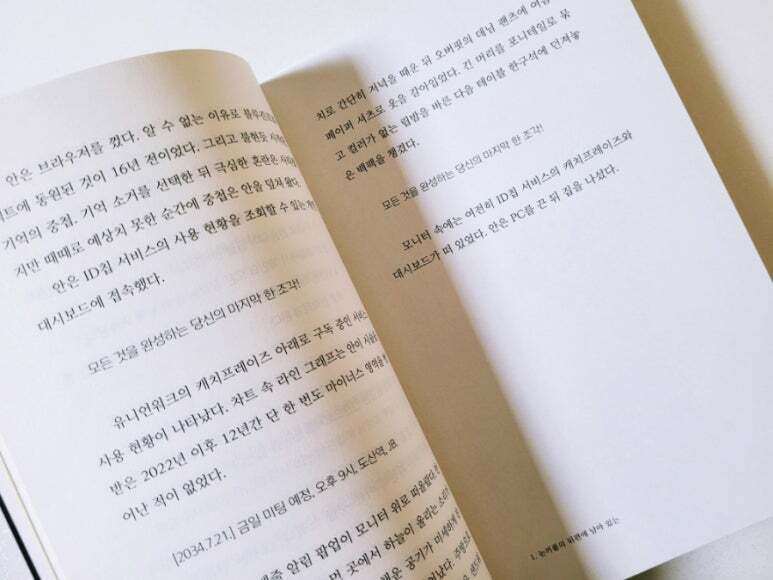 안은 브라우저를 껐다. 알 수 없는 이유로
트에 동원된 것이 16년 전이었다. 그리고 불현듯
기억의 중첩. 기억 소거를 선택한 뒤 극심한 혼란은
지만 때때로 예상치 못한 순간에 중첩은 안을 덮쳐왔다.
안은 ID칩 서비스의 사용 현황을 조회할 수 있는
대시보드에 접속했다.
모든 것을 완성하는 당신의 마지막 한 조각!
유니언워크의 캐치프레이즈 아래로 구독 중인 서비스
사용 현황이 나타났다. 차트 속 라인 그래프는 안이
반은 2022년 이후 12년간 단 한 번도 마이너스 영역을
어난 적이 없었다.
[2034.7.21.] 금일 미팅 예정, 오후 9시, 도산역, JB
알림 팝업이 모니터 위로 떠올랐다.
곳에서 하늘이 울리는
공기가 미세하게
치로 간단히 저녁을 때운 뒤 오버핏의 데님 팬츠에
페이퍼 셔츠로 옷을 갈아입었다. 긴 머리를 포니테일로 묶
고 컬러가 없는 립밤을 바른 다음 테이블 한구석에 던져놓
은 백팩을 챙겼다.
모든 것을 완성하는 당신의 마지막 한 조각!
모니터 속에는 여전히 ID칩 서비스의 캐치프레이즈와
대시보드가 떠 있었다. 안은 PC를 끈 뒤 집을 나섰다.
1. 눈꺼풀의 뒤편에 남아 있는